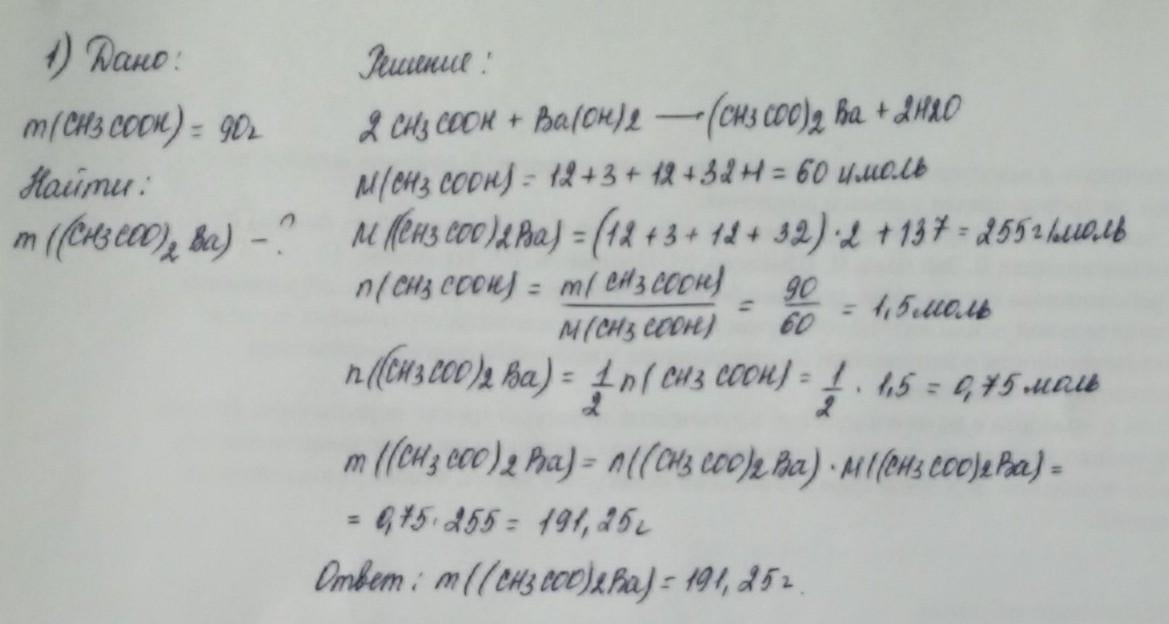 1) Дано:
m(CH3COOH) = 90г
Найти:
m((CH3COO)2 Ba) - ?
Решение:
2 CH3COOH + Ba(OH)2 → (CH3COO)2 Ba + 2H2O
M(CH3COOH) = 12+3+12+32+1 = 60 г/моль
M((CH3COO)2Ba) = (12+3+12+32)·2 + 137 = 255г/моль
n(CH3COOH) = m(CH3COOH) / M(CH3COOH) = 90/60 = 1,5моль
n((CH3COO)2Ba) = 1/2 n(CH3COOH) = 1/2 · 1,5 = 0,75 моль
m((CH3COO)2Ba) = n((CH3COO)2Ba)·M((CH3COO)2Ba) =
= 0,75·255 = 191,25г
Ответ: m((CH3COO)2Ba) = 191,25г.